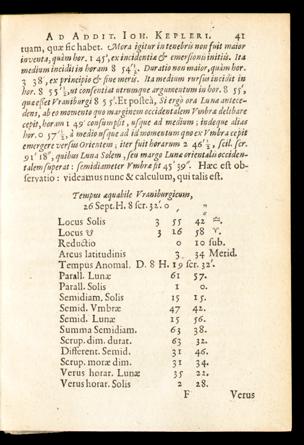 AD ADDIT. IOH. KEPLERI. 41
tuam, quæ sic habet. Mora igitur in tenebris non fuit maior
inventa, quàm hor. 1 45′, ex incidentiæ & emersionis initiis. Ita
medium incidit in horam 8 54′½. Duratio non maior, quàm hor.
3 38′, ex principio & fine meris. Ita medium rursus incidit in
hor. 8 55′½, ut consentiat utrumque argumentum in hor. 8 55′,
quæ est Vraniburgi 8 5′. Et posteà, Si ergò ora Lunæ antece-
dens, ab eo momento quo marginem occidentalem Vmbra delibare
cepit, horam 1 49′ consumpsit, usque ad medium; indeque alias
hor. 0 57′½, à medio usque ad id momentum quo ex Vmbra cepit
emergere versus Orientem; iter fuit horarum 2 46′½, scil. scr.
91′ 18″, quibus Luna Solem, seu margo Lunæ orientalis occiden-
talem superat: semidiameter Vmbræ sit 45′ 39″. Hæc est ob-
servatio: videamus nunc & calculum, qui talis est.
Tempus æquabile Vraniburgicum,
26 Sept. H. 8 scr. 32′. 0
Locus Solis 3 55 42 ♎.
Locus ☋ 3 16 58 ♈.
Reductio 0 10 sub.
Arcus latitudinis 3 34 Merid.
Tempus Anomal. D. 8 H. 19 scr. 32′.
Parall. Lunæ 61 57.
Parall. Solis 1 0.
Semidiam. Solis 15 15.
Semid. Vmbræ 47 42.
Semid. Lunæ 15 56.
Summa Semidiam. 63 38.
Scrup. dim. durat. 63 32.
Different. Semid. 31 46.
Scrup. moræ dim. 31 34.
Verus horar. Lunæ 35 22.
Verus horar. Solis 2 28.
F Verus